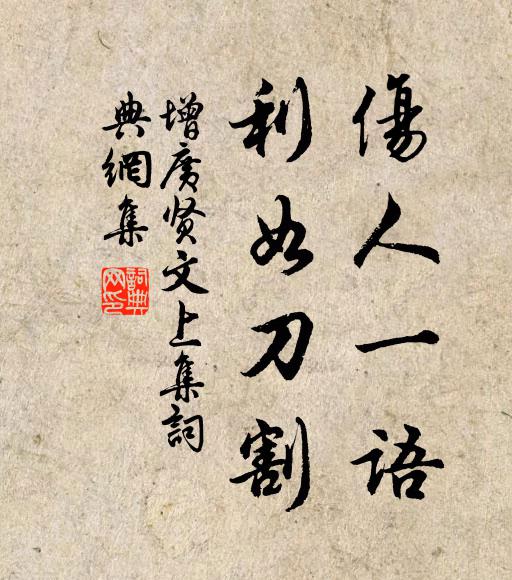 傷人一語
利如刀割
增廣贤文上集詞
典網集
詞典
网印